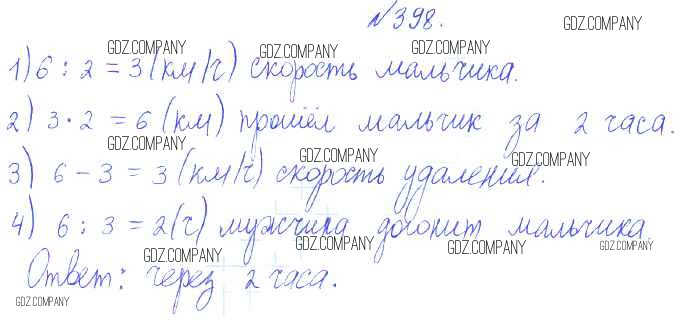 №398.
GDZ.COMPANY
GDZ.COMPANY GDZ.COMPANY GDZ.COMPANY
1) 6 : 2 = 3 (км/ч) скорость мальчика.
GDZ.COMPANY GDZ.COMPANY GDZ.COMPANY
2) 3 · 2 = 6 (км) прошёл мальчик за 2 часа.
GDZ.COMPANY GDZ.COMPANY GDZ.COMPANY
3) 6 - 3 = 3 (км/ч) скорость удаления.
4) 6 : 3 = 2 (ч) мужчина догонит мальчика.
GDZ.COMPANY GDZ.COMPANY GDZ.COMPANY GDZ.COMPANY
Ответ: через 2 часа.
GDZ.COMPANY